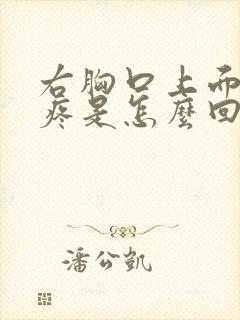 右胸口上而
疼是怎麼回
潘公凱